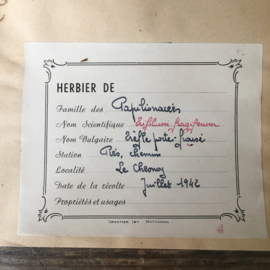 HERBIER DE
Famille des Papilionacées
Nom Scientifique Trifolium fragiferum
Nom Vulgaire trèfle porte-fraise
Station Prés, chemins
Localité Le
Date de la récolte Juillet 1942
Propriétés et usages